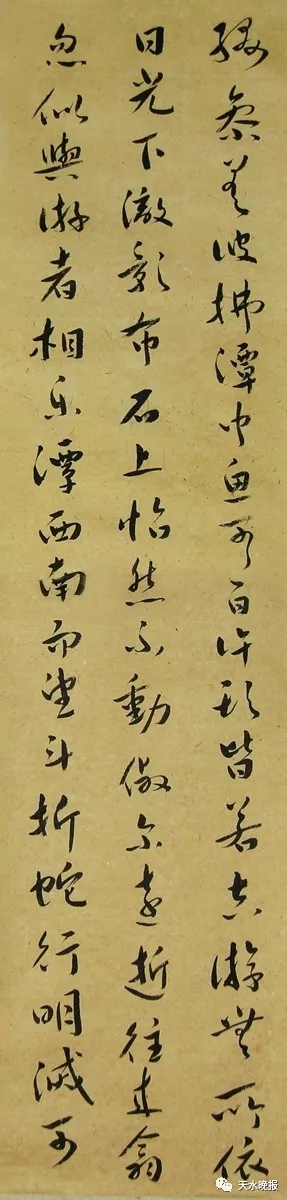 缀参差披拂潭中鱼可百许头皆若空游無所依
日光下澈影布石上怡然不動俶尔远逝往来翕
忽似與游者相乐潭西南而望斗折蛇行明滅可
天水晚报